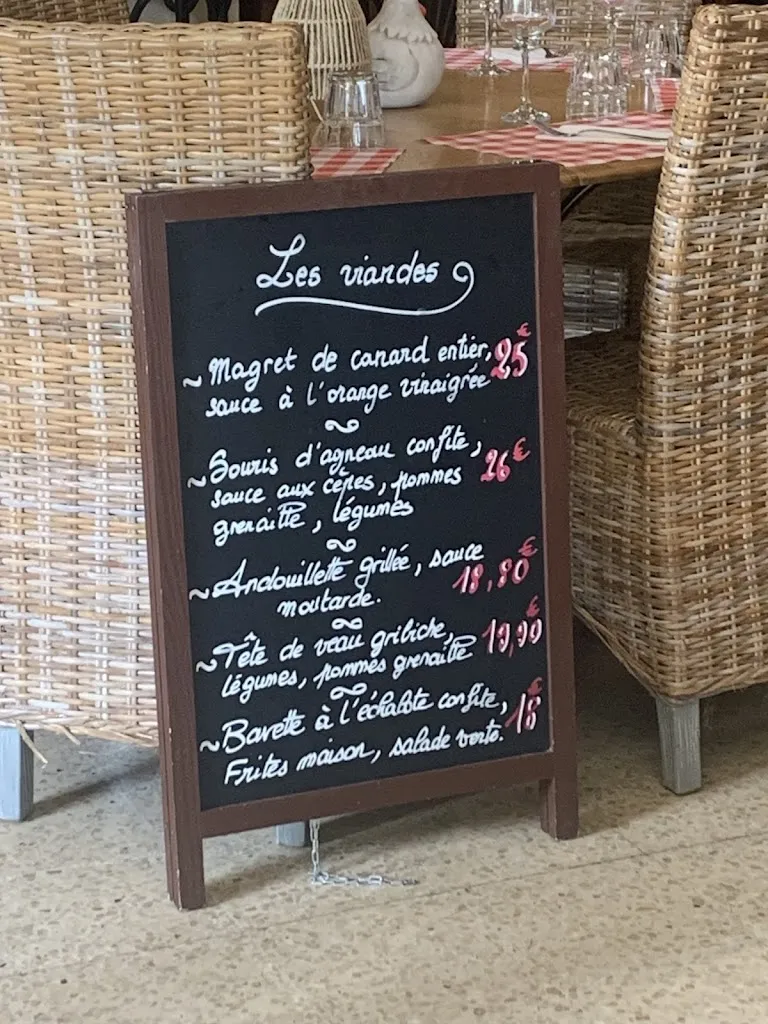 Les viandes
~ Magret de canard entier, 25 €
sauce à l'orange vinaigrée
~ Souris d'agneau confite, 26 €
sauce aux cèpes, pommes
grenaille, légumes
~ Andouillette grillée, sauce 18,80 €
moutarde.
~ Tête de veau gribiche, 19,90 €
légumes, pommes grenaille
~ Bavette à l'échalote confite, 18 €
Frites maison, salade verte.